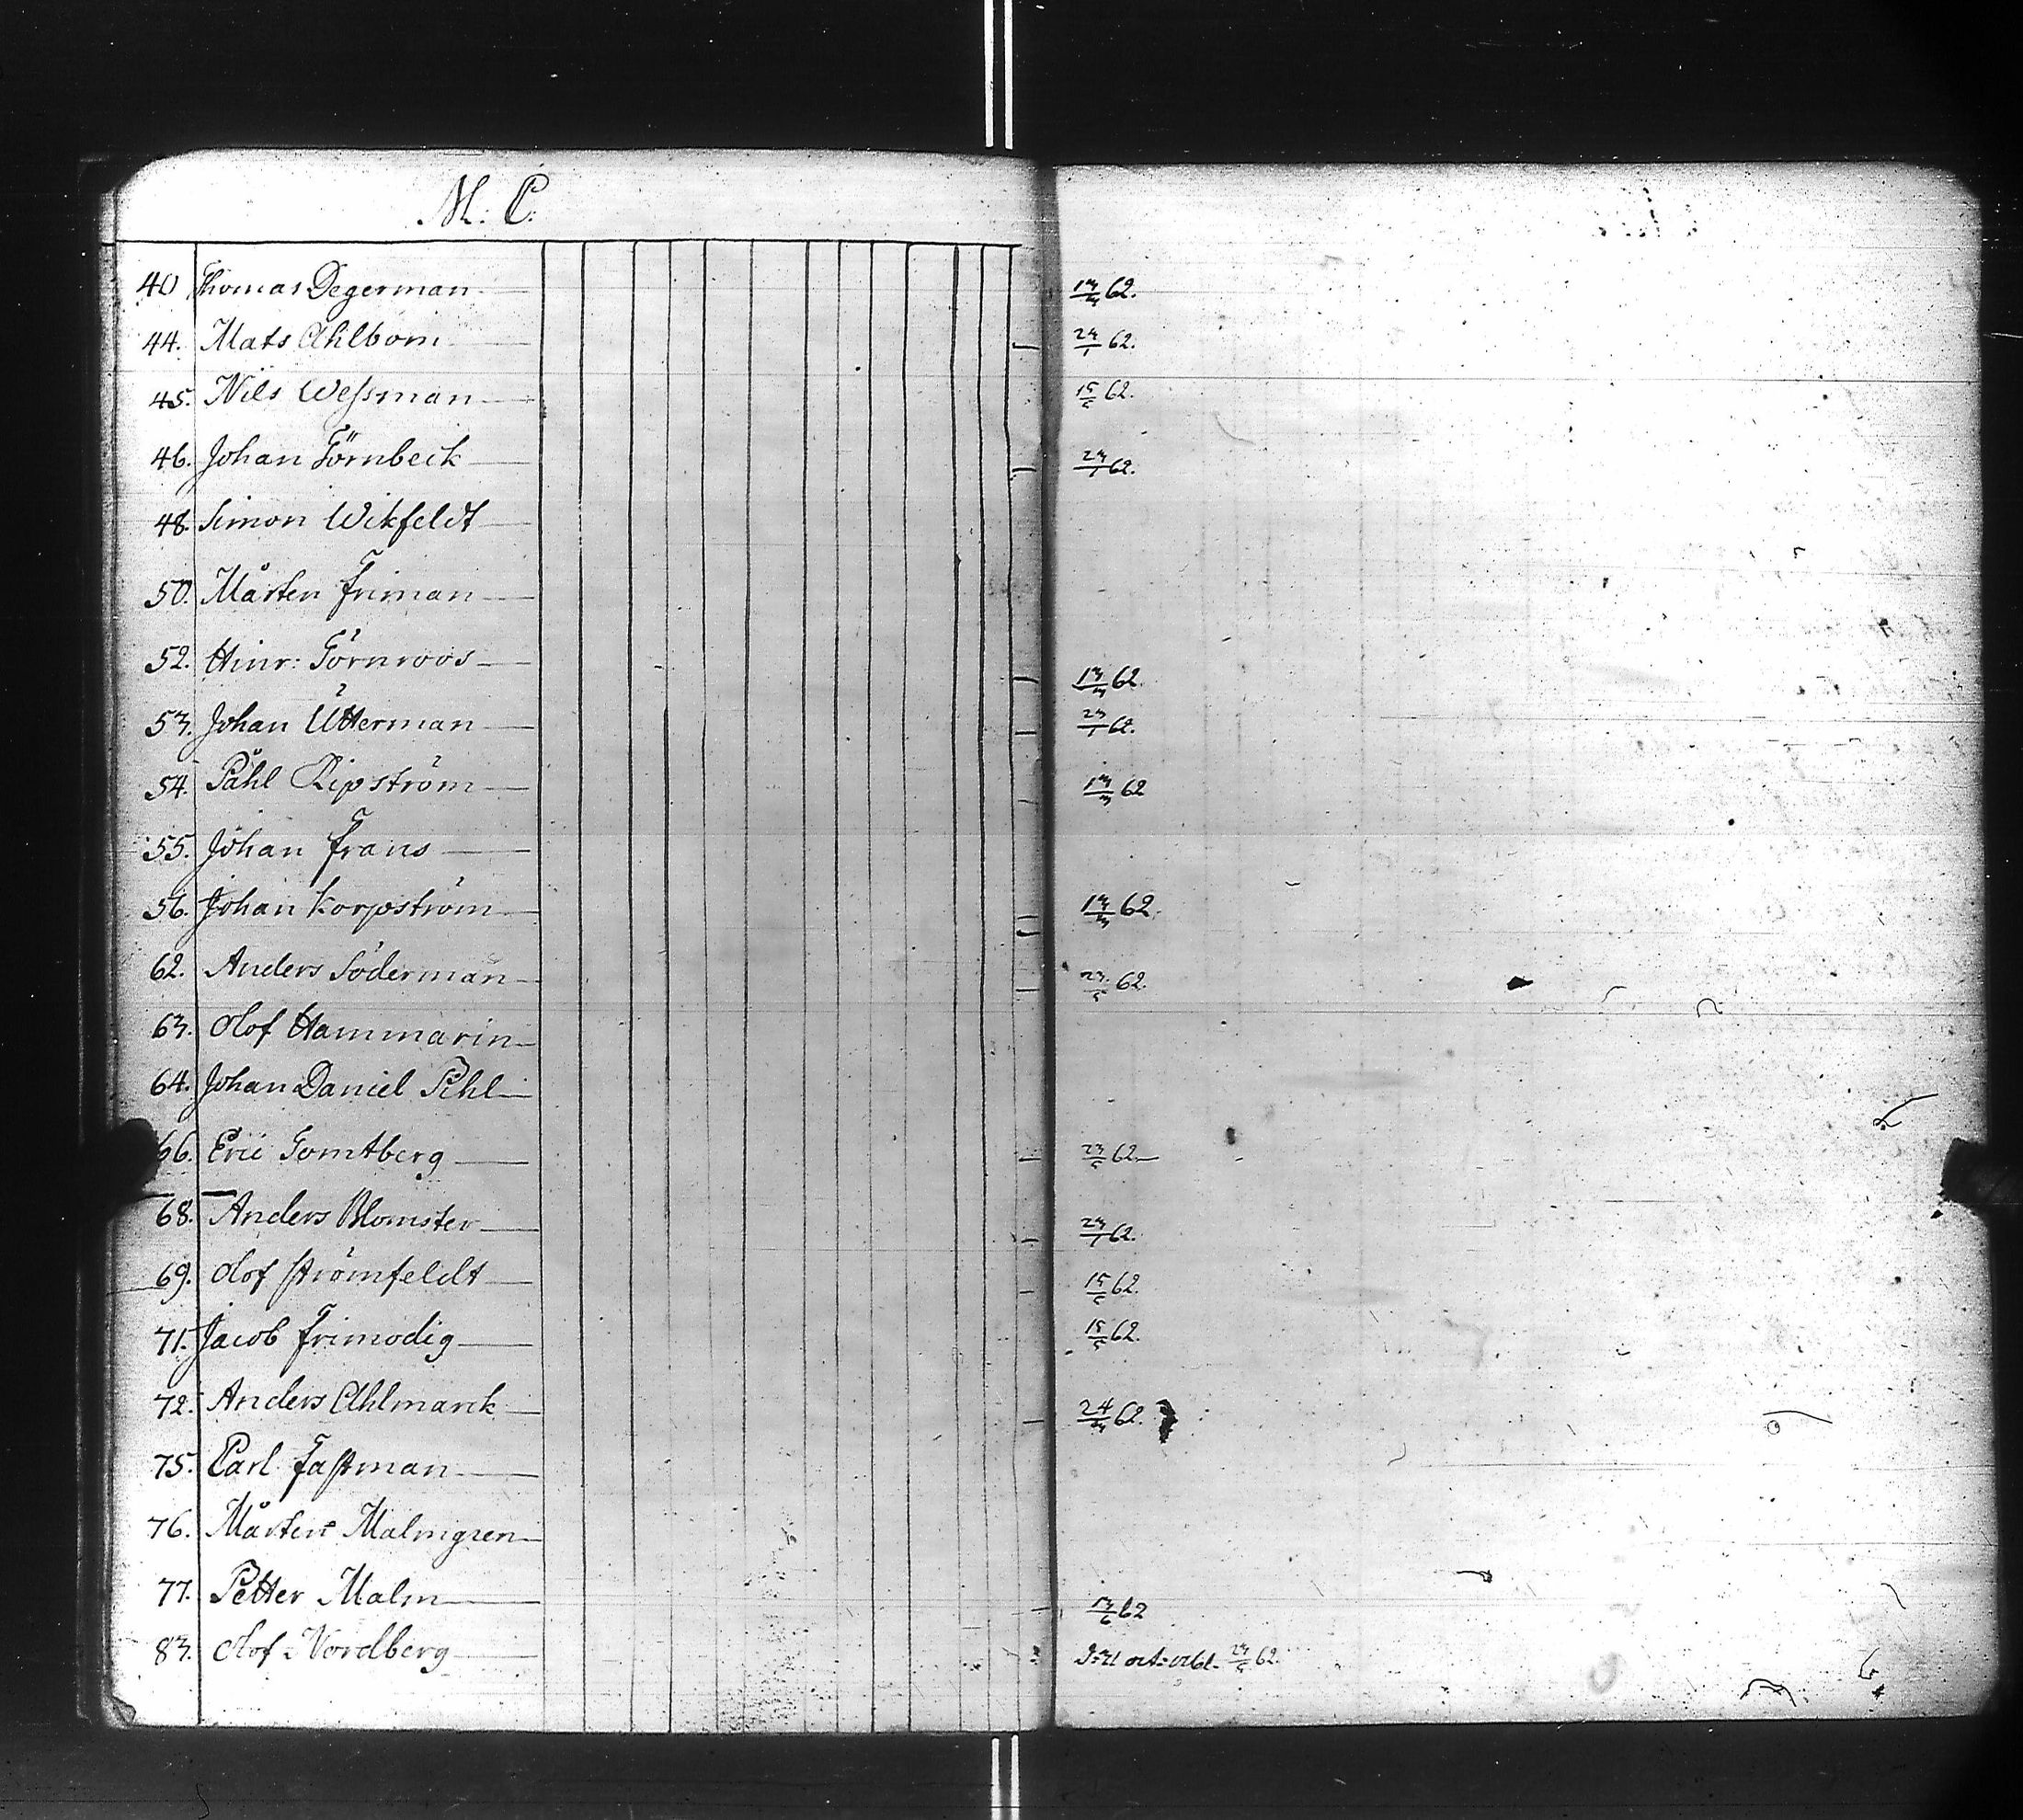 M: C:
40 Thomas Degerman 13/3 62.
44. Mats Ahlbom 23/1 62.
45. Nils Wessman 15/5 62.
46. Johan Törnbeck 23/1 62.
48. Simon Wikfeldt
50. Mårten Friman
52. Hinr: Törnroos 13/3 62.
53. Johan Utterman 23/1 62.
54. Påhl Ripström 13/3 62
55. Johan Frans
56. Johan Korpström 13/3 62.
62. Anders Söderman 23/5 62.
63. Olof Hammarin
64. Johan Daniel Pihl
66. Eric Tomtberg 23/5 62
68. Anders Blomster 23/1 62.
69. Olof Strömfeldt 15/5 62.
71. Jacob Frimodig 15/5 62.
72. Anders Ahlmarck 24/3 62.
75. Carl Fastman
76. Mårten Malmgren
77. Petter Malm 13/6 62
83. Olof Nordberg 23/5 62.